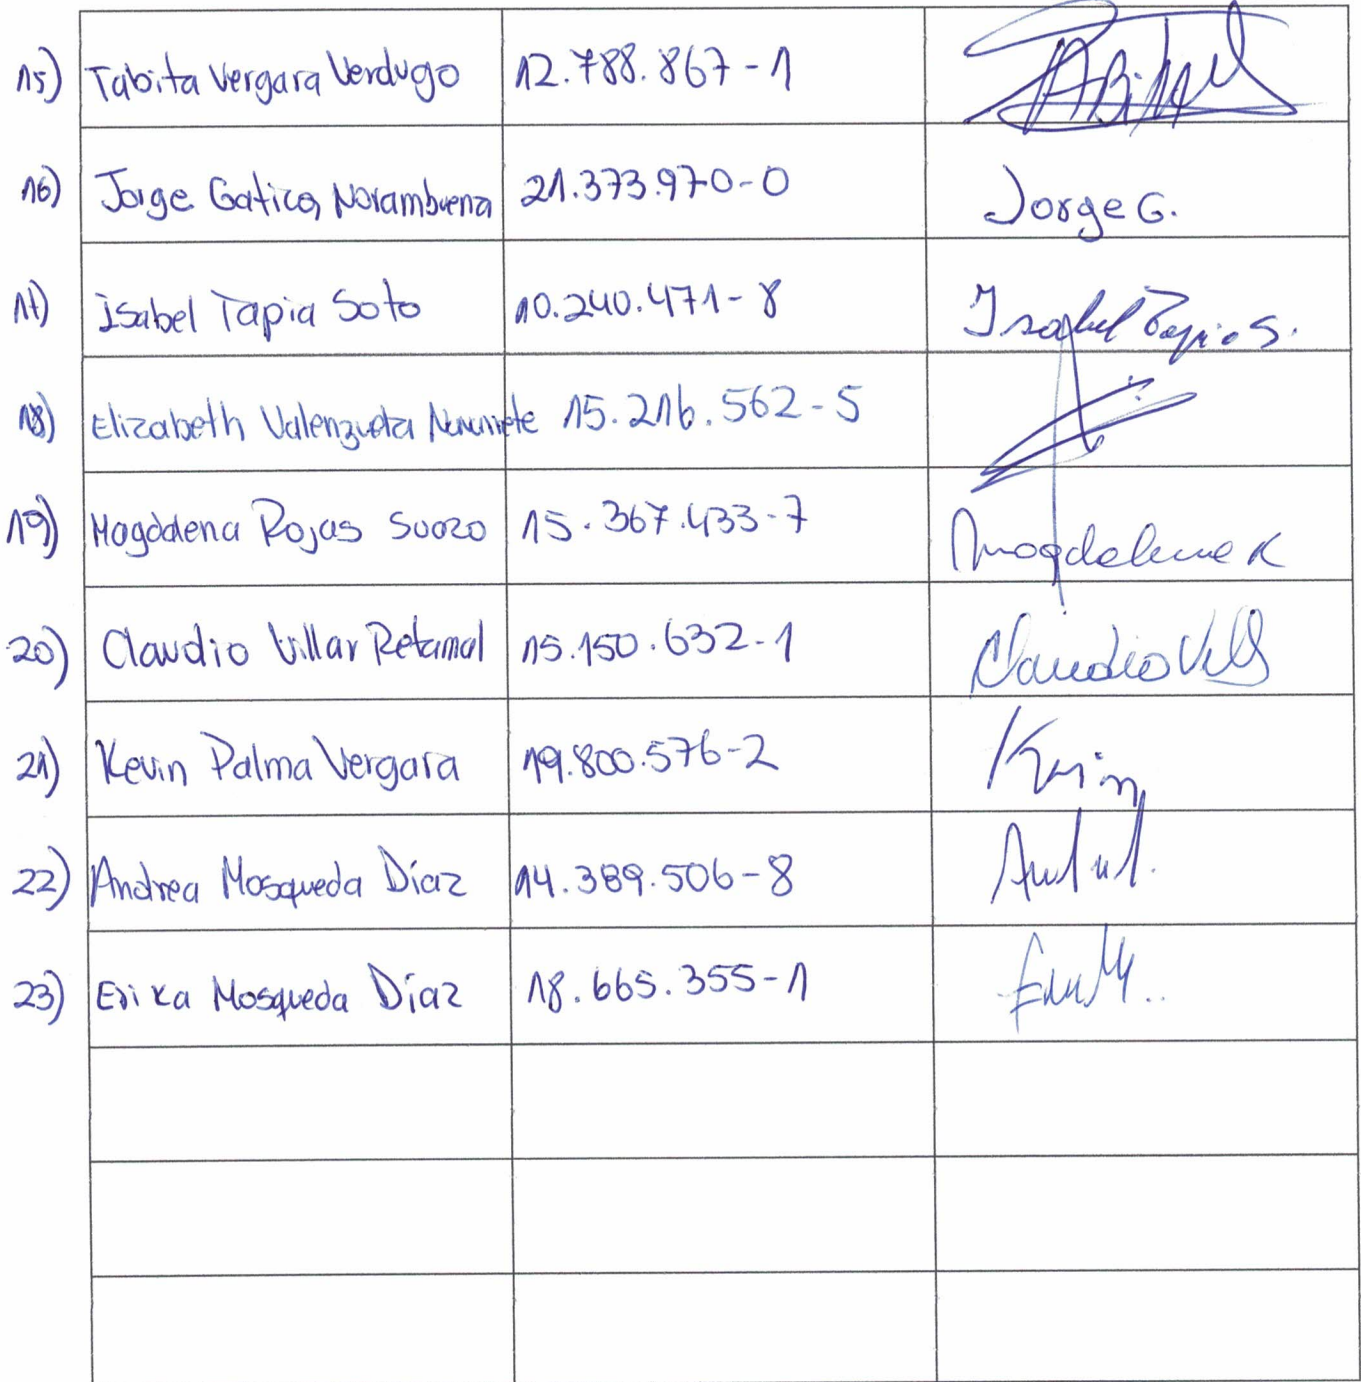 15) Tabita Vergara Verdugo 12.788.867-1
16) Jorge Gatica Norambuena 21.373.970-0 Jorge G.
17) Isabel Tapia Soto 10.240.471-8 Isabel Tapia S.
18) Elizabeth Valenzuela 15.216.562-5
19) Magdalena Rojas Suazo 15.367.433-7 Magdalena R
20) Claudio Villar Retamal 15.150.632-1 Claudio Vill
21) Kevin Palma Vergara 19.800.576-2 Kevin
22) Andrea Mosqueda Díaz 14.389.506-8
23) Erika Mosqueda Díaz 18.665.355-1